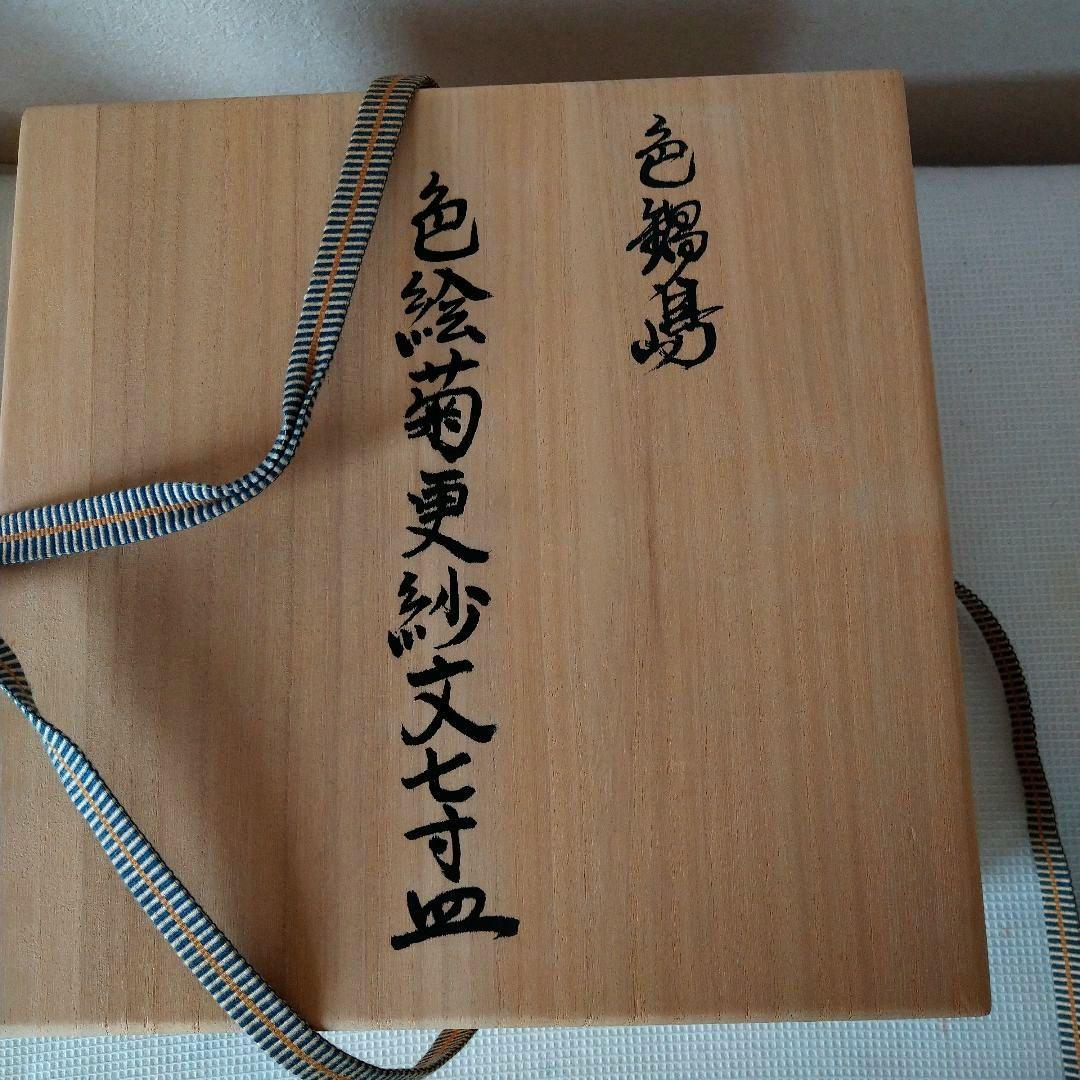 色鍋島
色絵菊更紗文七寸皿